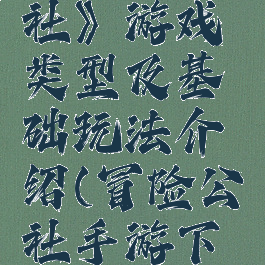 社》游戏
类型及基
础玩法介
绍(冒险公
社手游下